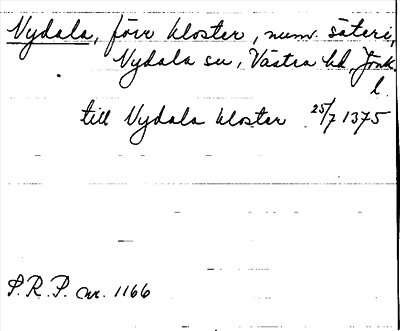 Nydala, förr kloster, num. säteri,
Nydala sn, Västra hd, Jönk.
l.
till Nydala kloster 25/7 1375
S.R.P. nr. 1166